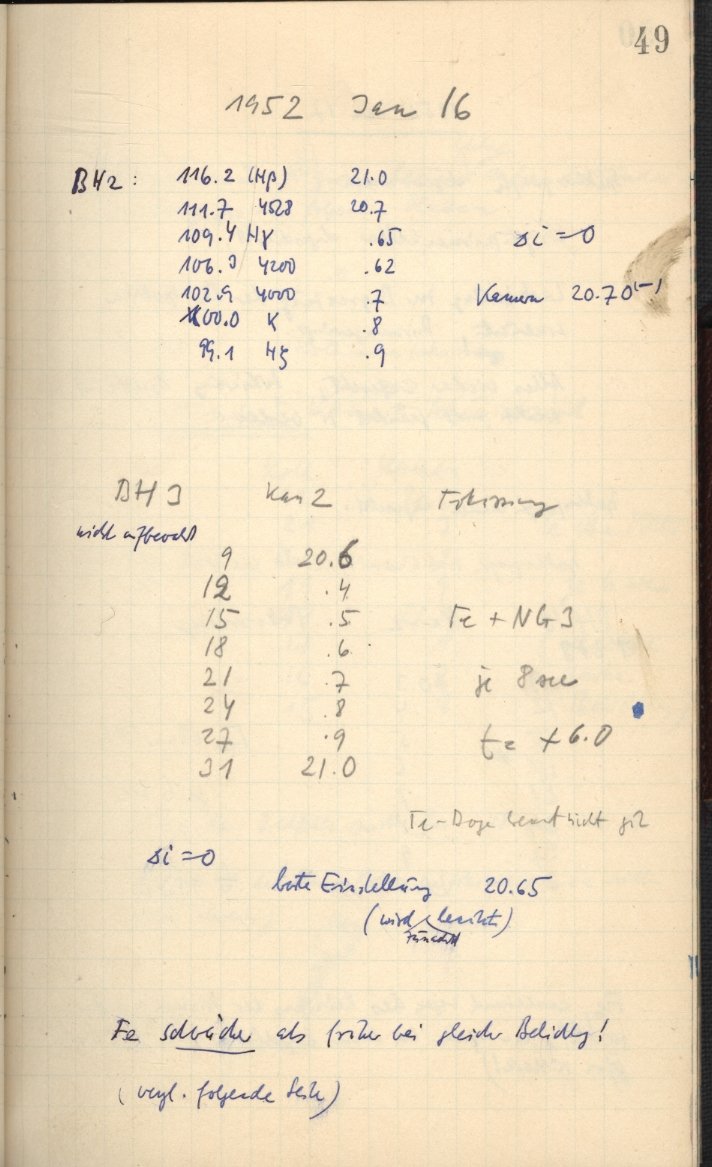 49
1952 Jan 16
BH2: 116.2 (Hβ) 21.0
111.7 4528 20.7
109.4 Hγ .65 Δi = 0
106.3 4200 .62
102.9 4000 .7 Kamera 20.70
100.0 K .8
99.1 Hζ .9
BH 3 Kam 2 Fokussierung
nicht aufbewahrt
9 20.6
12 .4
15 .5 Fe + NG3
18 .6
21 .7 je 8 sec
24 .8
27 .9 +6.0
31 21.0
Fe-Bogen brennt nicht gut
Δi = 0
beste Einstellung 20.65
(wird benützt)
zunächst
Fe schwächer als früher bei gleicher Belichtg!
(vergl. folgende Seite)